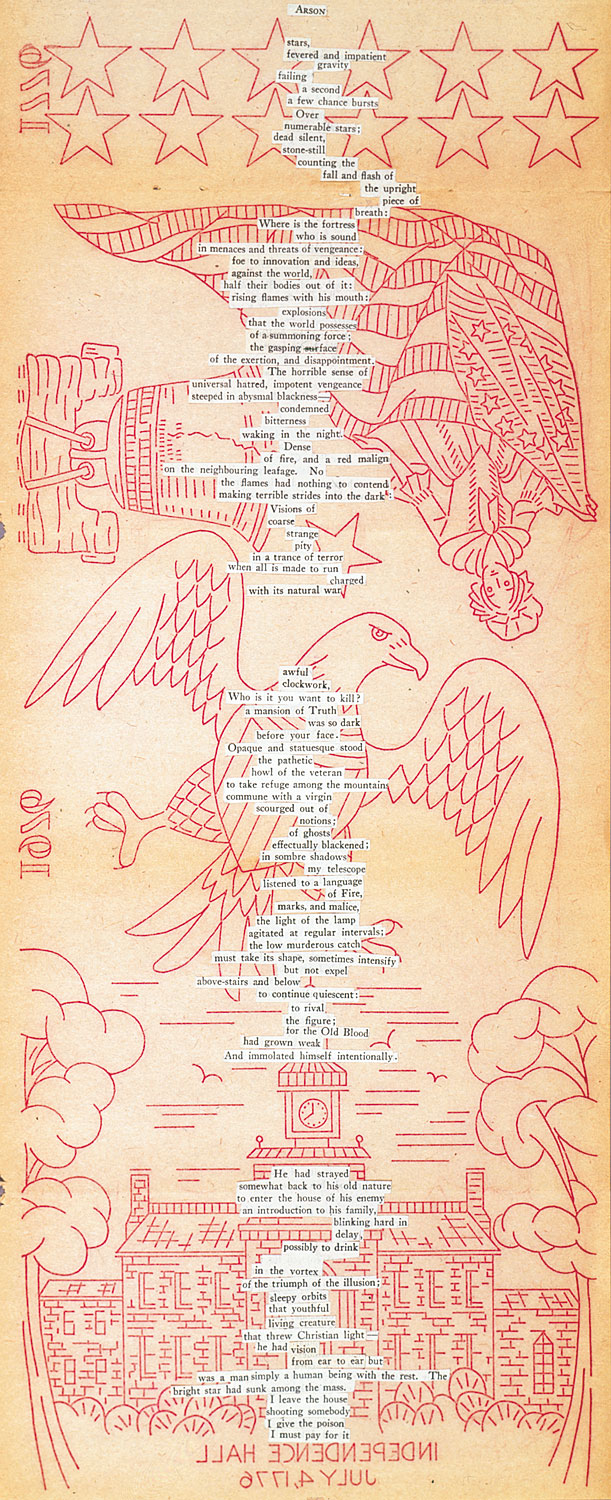 ARSON
1776
stars,
fevered and impatient
gravity
failing
a second
a few chance bursts
Over
numerable stars;
dead silent,
stone-still
counting the
fall and flash of
the upright
piece of
breath:
Where is the fortress
who is sound
in menaces and threats of vengeance:
foe to innovation and ideas,
against the world,
half their bodies out of it:
rising flames with his mouth:
explosions
that the world possesses
of a summoning force;
the gasping surface
of the exertion, and disappointment.
The horrible sense of
universal hatred, impotent vengeance
steeped in abysmal blackness—
condemned
bitterness
waking in the night.
Dense
of fire, and a red malign
on the neighbouring leafage. No
the flames had nothing to contend
making terrible strides into the dark:
Visions of
coarse
strange
pity
in a trance of terror
when all is made to run
charged
with its natural war,
awful
clockwork,
Who is it you want to kill?
a mansion of Truth
was so dark
before your face.
Opaque and statuesque stood
the pathetic
howl of the veteran
to take refuge among the mountains
commune with a virgin
scourged out of
notions;
of ghosts
effectually blackened;
in sombre shadows
my telescope
listened to a language
of Fire,
marks, and malice,
the light of the lamp
agitated at regular intervals;
the low murderous catch
must take its shape, sometimes intensify
but not expel
above-stairs and below
to continue quiescent:
to rival
the figure;
for the Old Blood
had grown weak
And immolated himself intentionally.
1976
He had strayed
somewhat back to his old nature
to enter the house of his enemy
an introduction to his family,
blinking hard in
delay,
possibly to drink
in the vortex
of the triumph of the illusion;
sleepy orbits
that youthful
living creature
that threw Christian light—
he had vision
from ear to ear but
was a man simply a human being with the rest. The
bright star had sunk among the mass.
I leave the house
shooting somebody
I give the poison
I must pay for it
INDEPENDENCE HALL
JULY 4, 1776